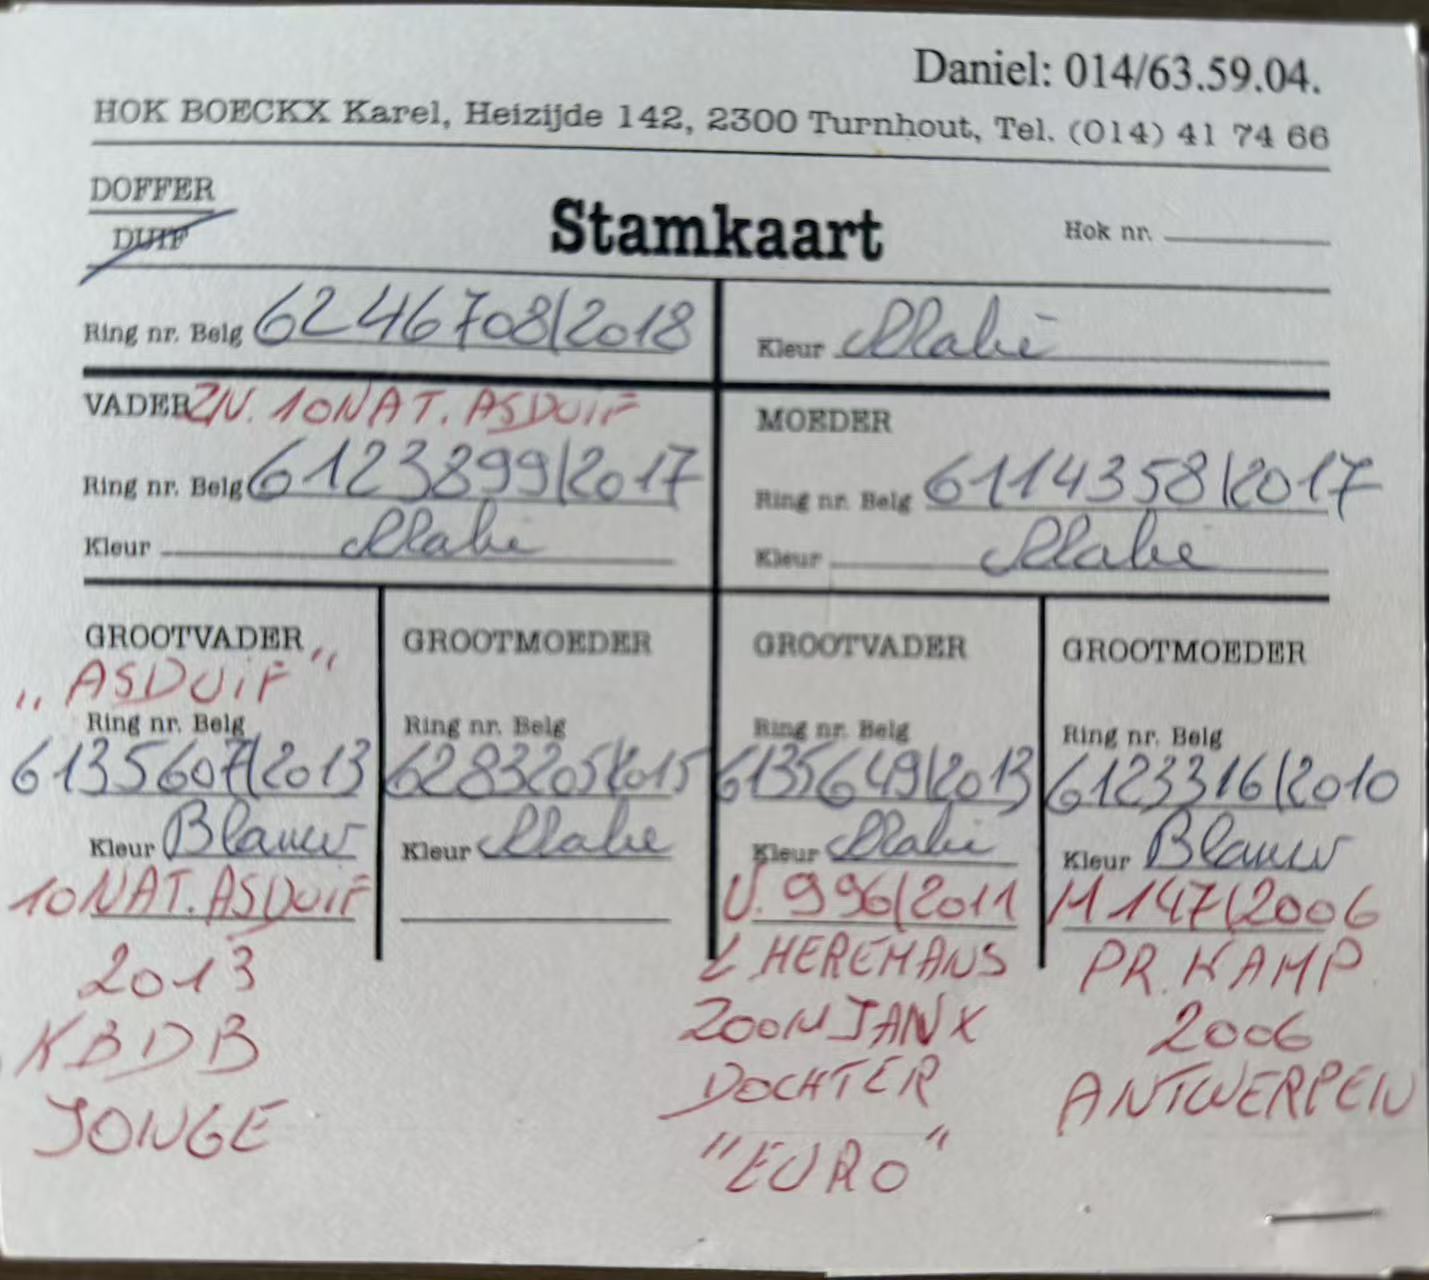 Daniel: 014/63.59.04.
HOK BOECKX Karel, Heizijde 142, 2300 Turnhout, Tel. (014) 41 74 66
DOFFER
DUIF
Stamkaart
Hok nr.
Ring nr. Belg 6246708/2018
Kleur
VADER ZN. 10NAT. ASDUIF
Ring nr. Belg 6123899/2017
Kleur
MOEDER
Ring nr. Belg 6114358/2017
Kleur
GROOTVADER
"ASDUIF"
Ring nr. Belg
6135607/2013
Kleur Blauw
10NAT. ASDUIF
2013
KBDB
JONGE
GROOTMOEDER
Ring nr. Belg
6283205/2015
Kleur
GROOTVADER
Ring nr. Belg
6135649/2013
Kleur
V. 996/2011
L HEREMANS
ZOON JAN X
DOCHTER
"EURO"
GROOTMOEDER
Ring nr. Belg
6123316/2010
Kleur Blauw
M 147/2006
PR. KAMP
2006
ANTWERPEN